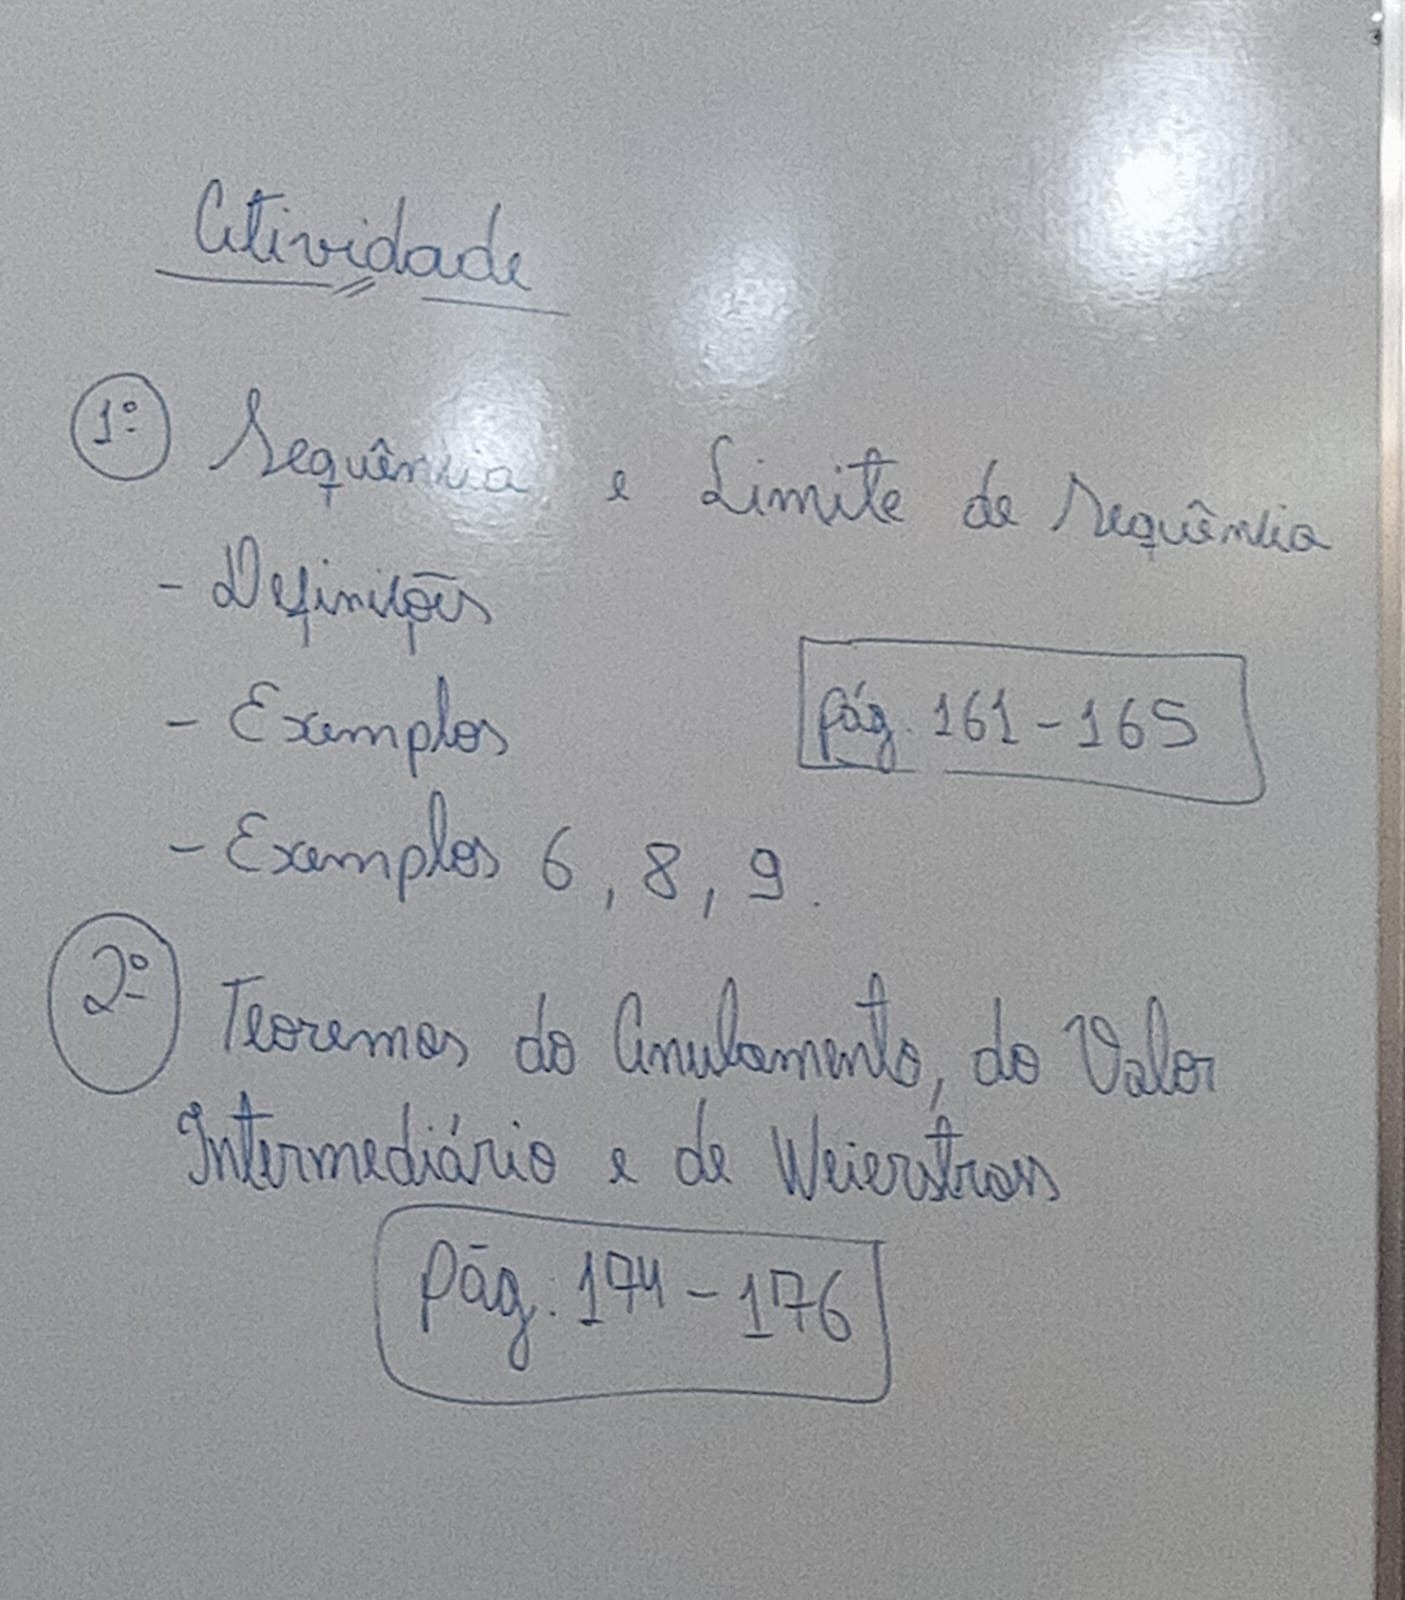 Atividade
1º Sequência e Limite de sequência
- Definições
- Exemplos
pág. 161-165
- Exemplos 6, 8, 9.
2º Teoremas do Anulamento, do Valor
Intermediário e de Weierstrass
Pág: 174-176